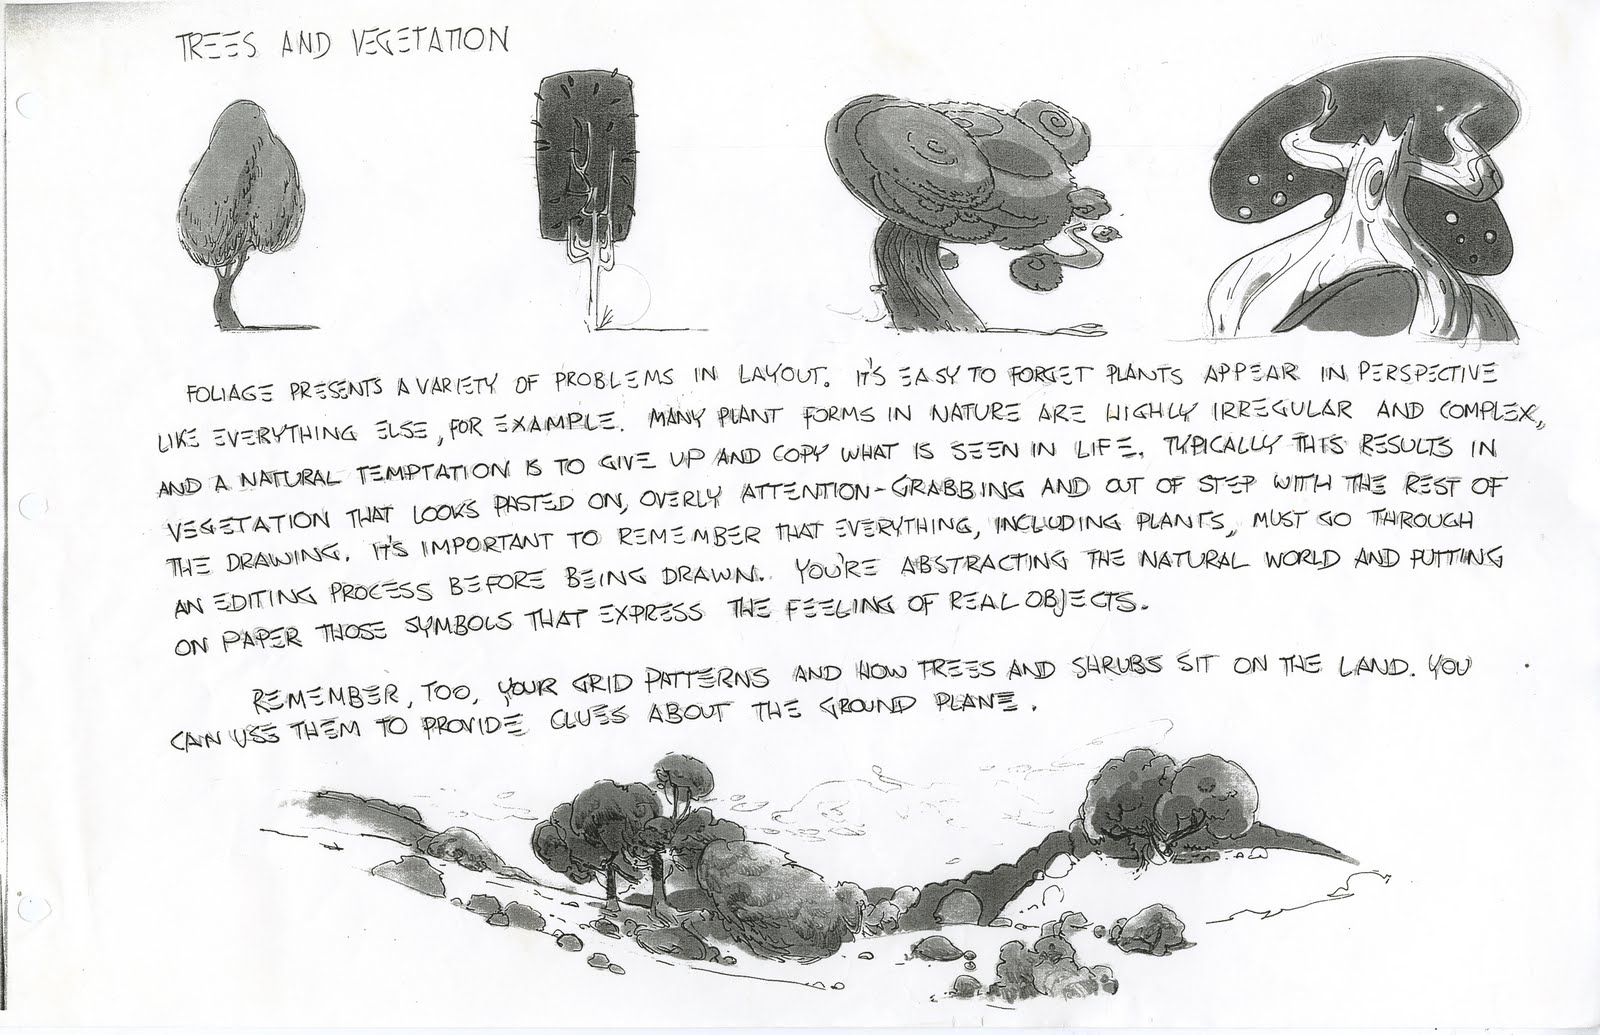 TREES AND VEGETATION
FOLIAGE PRESENTS A VARIETY OF PROBLEMS IN LAYOUT. IT'S EASY TO FORGET PLANTS APPEAR IN PERSPECTIVE
LIKE EVERYTHING ELSE, FOR EXAMPLE. MANY PLANT FORMS IN NATURE ARE HIGHLY IRREGULAR AND COMPLEX,
AND A NATURAL TEMPTATION IS TO GIVE UP AND COPY WHAT IS SEEN IN LIFE. TYPICALLY THIS RESULTS IN
VEGETATION THAT LOOKS PASTED ON, OVERLY ATTENTION-GRABBING AND OUT OF STEP WITH THE REST OF
THE DRAWING. IT'S IMPORTANT TO REMEMBER THAT EVERYTHING, INCLUDING PLANTS, MUST GO THROUGH
AN EDITING PROCESS BEFORE BEING DRAWN. YOU'RE ABSTRACTING THE NATURAL WORLD AND PUTTING
ON PAPER THOSE SYMBOLS THAT EXPRESS THE FEELING OF REAL OBJECTS.
REMEMBER, TOO, YOUR GRID PATTERNS AND HOW TREES AND SHRUBS SIT ON THE LAND. YOU
CAN USE THEM TO PROVIDE CLUES ABOUT THE GROUND PLANE.